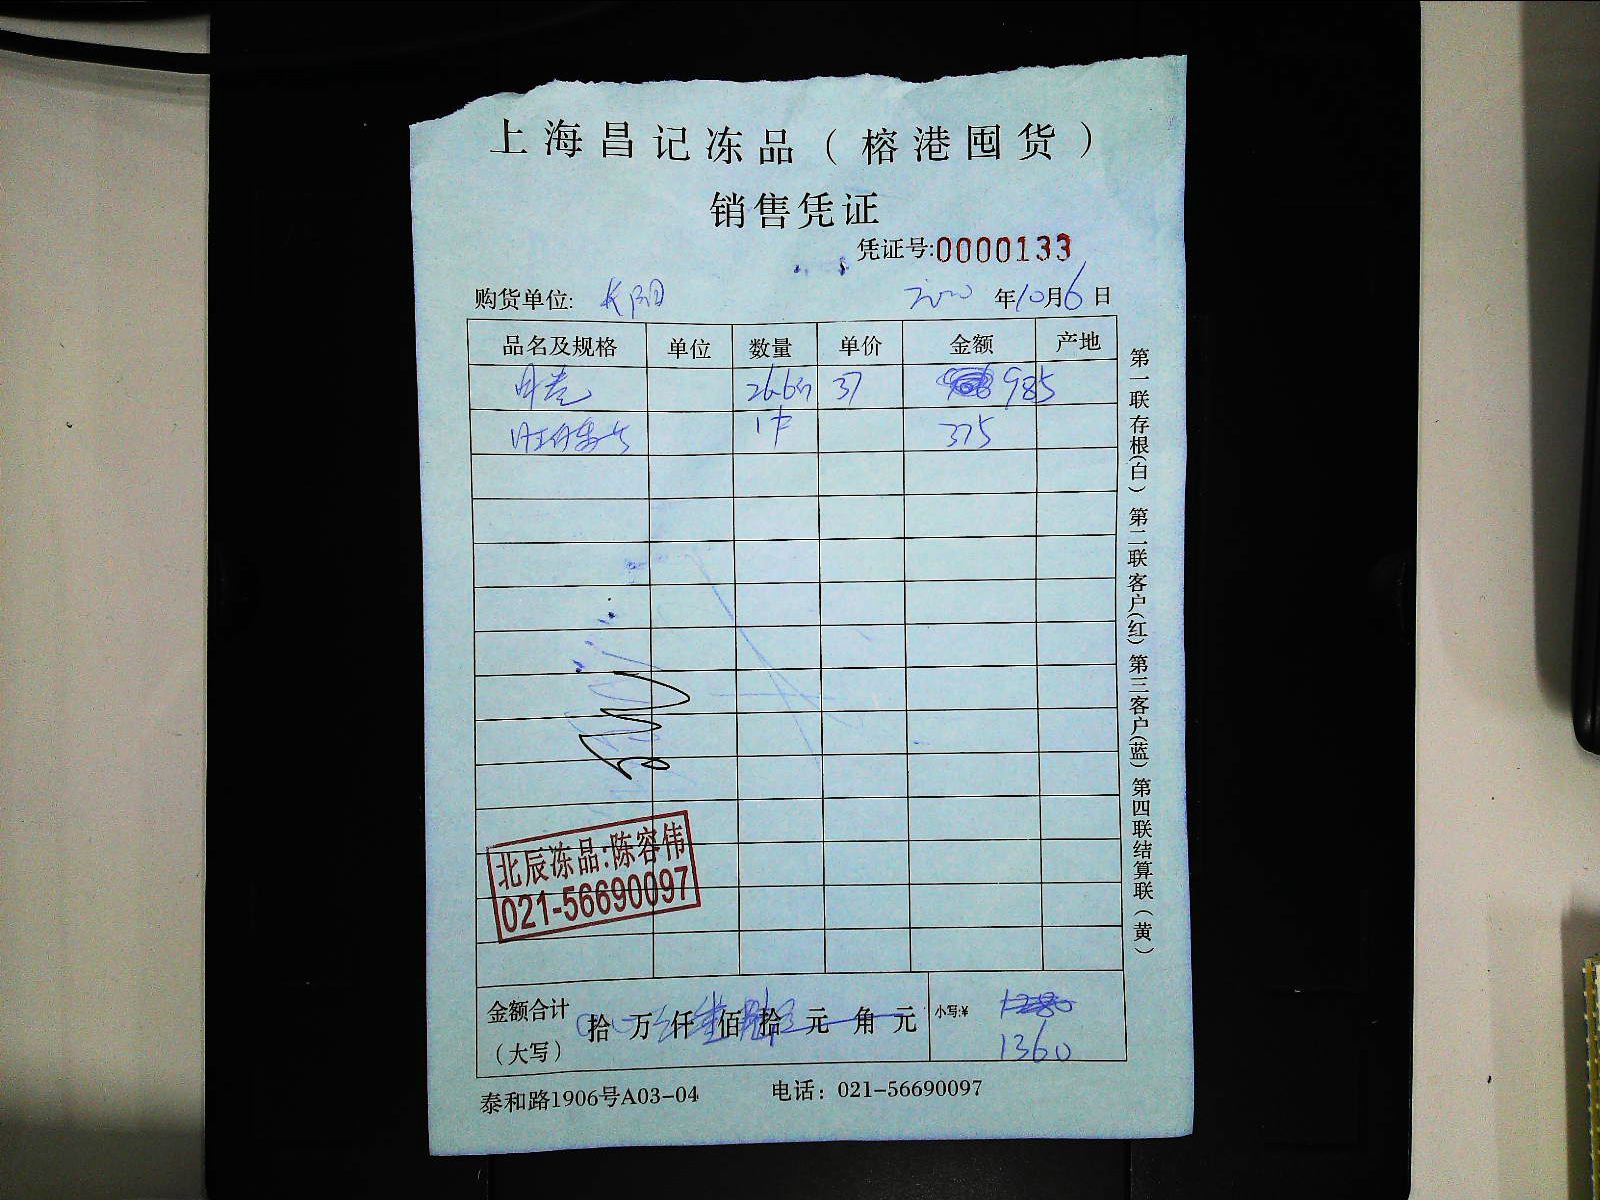 上海昌记冻品（榕港囤货）
销售凭证
凭证号:0000133
购货单位: 长阳 2020年10月6日
品名及规格 单位 数量 单价 金额 产地
26.6斤 37 985
1件 375
北辰冻品:陈容伟
021-56690097
金额合计 拾 万 仟 佰 拾 元 角 元 小写:¥
（大写） 1360
泰和路1906号A03-04 电话：021-56690097
第一联存根(白) 第二联客户(红) 第三客户(蓝) 第四联结算联(黄)